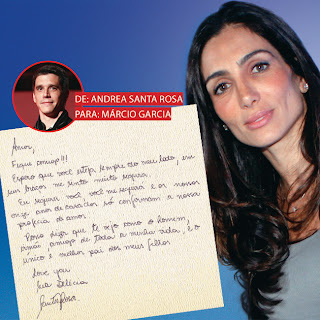 DE: ANDREA SANTA ROSA
PARA: MÁRCIO GARCIA
Amor,
Fique comigo!!!
Espero que você esteja sempre do meu lado, em
seus braços me sinto muito segura.
Eu seguro você, você me segura e os nossos
onze anos de casados só confirmam a nossa
profecia do amor.
Posso dizer que te vejo como o homem,
irmão, amigo de toda a minha vida, é o
único e melhor pai dos meus filhos
Love you
sua
Santa Rosa.